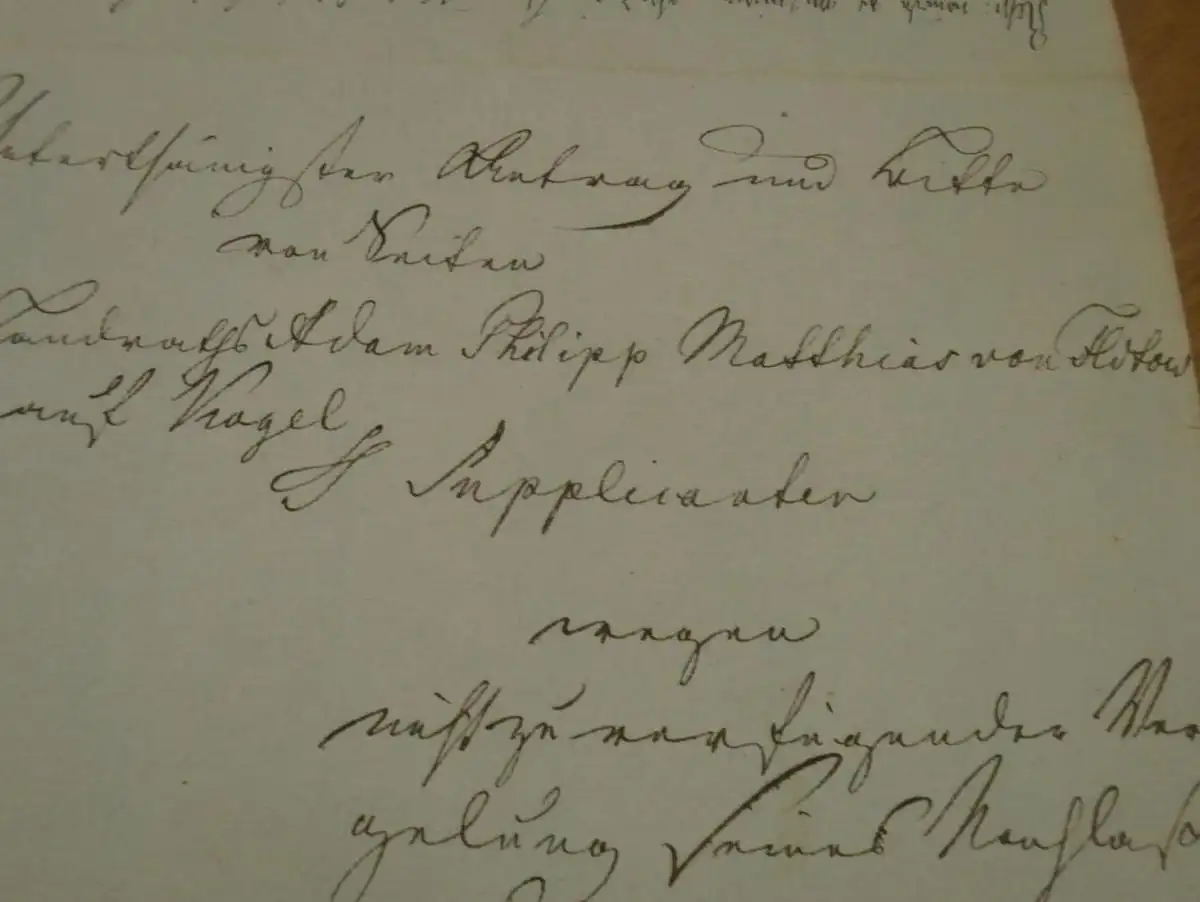 Unterthänigster Antrag und Bitte
von Seiten
Landraths Adam Philipp Matthias von Flotow
auf Kogel
Supplicanten
wegen
nicht zu verfügender Ver
gelung seines Nachlaß